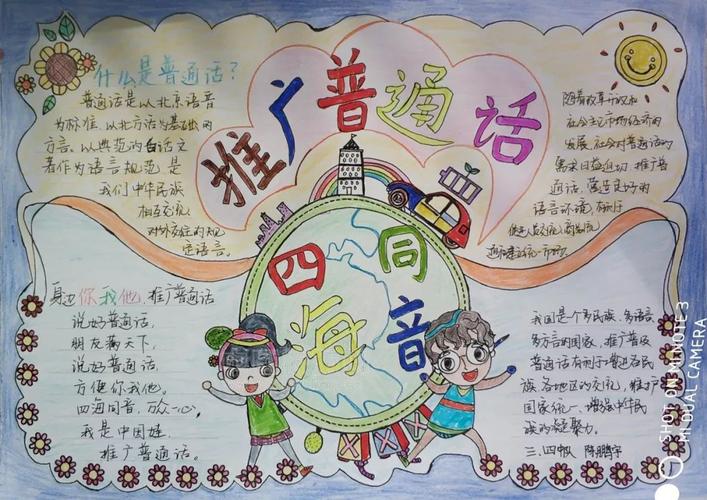 推广普通话
四海同音
什么是普通话？
普通话是以北京语音
为标准，以北方话为基础的
方言，以典范的白话文
著作为语言规范，是
我们中华民族
相互交流
对外交往的规
定语言。
随着改革开放和
社会主义市场经济的
发展，社会对普通话的
需求日益迫切，推广普
通话，营造良好的
语言环境，有利于
身边你我他，推广普通话
说好普通话，
朋友满天下，
说好普通话，
方便你我他。
四海同音，万众一心，
我是中国娃，
推广普通话。
我国是个多民族、多语言、
多方言的国家，推广普及
普通话有利于增进各民
族各地区的交流，维护
国家统一，增强中华民
族的凝聚力。
三.四班 陈鹏宇
SHOT ON MI NOTE 3
MI DUAL CAMERA